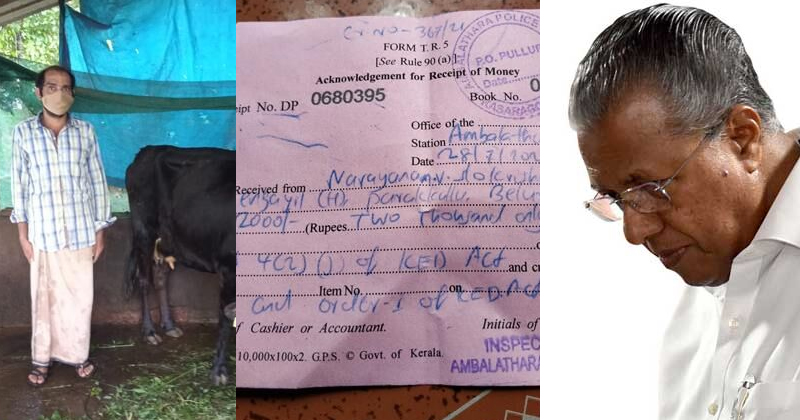 Cr. No - 367/21
FORM T.R. 5
[See Rule 90 (a)]
Acknowledgement for Receipt of Money
ipt No. DP 0680395 Book No. 0
Office of the
Station Ambalath
Date 28/7/20
Received from Narayanan
(H)
2000/- (Rupees Two Thousand only
4(2) of KED Act and c
Item No. on
and order-1 of KED Act
f Cashier or Accountant. Initials of
10,000x100x2. G.P.S. © Govt. of Kerala.
INSPEC
AMBALATHARA
AMBALATHARA POLICE
P.O. PULLUR
Date
KASARAGO